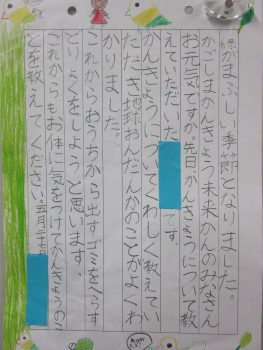 緑がまぶしい季節となりました。
かごしまかんきょう未来かんのみなさん
お元気ですか。先日、かんきょうについて教
えていただいた
です。
かんきょうについてくわしく教えてい
ただき地球おんだんかのことがよくわ
かりました。
これからおうちから出すゴミをへらす
どりょくをしようと思います。
これからもお体に気をつけてかんきょうのこ
とを教えてください。